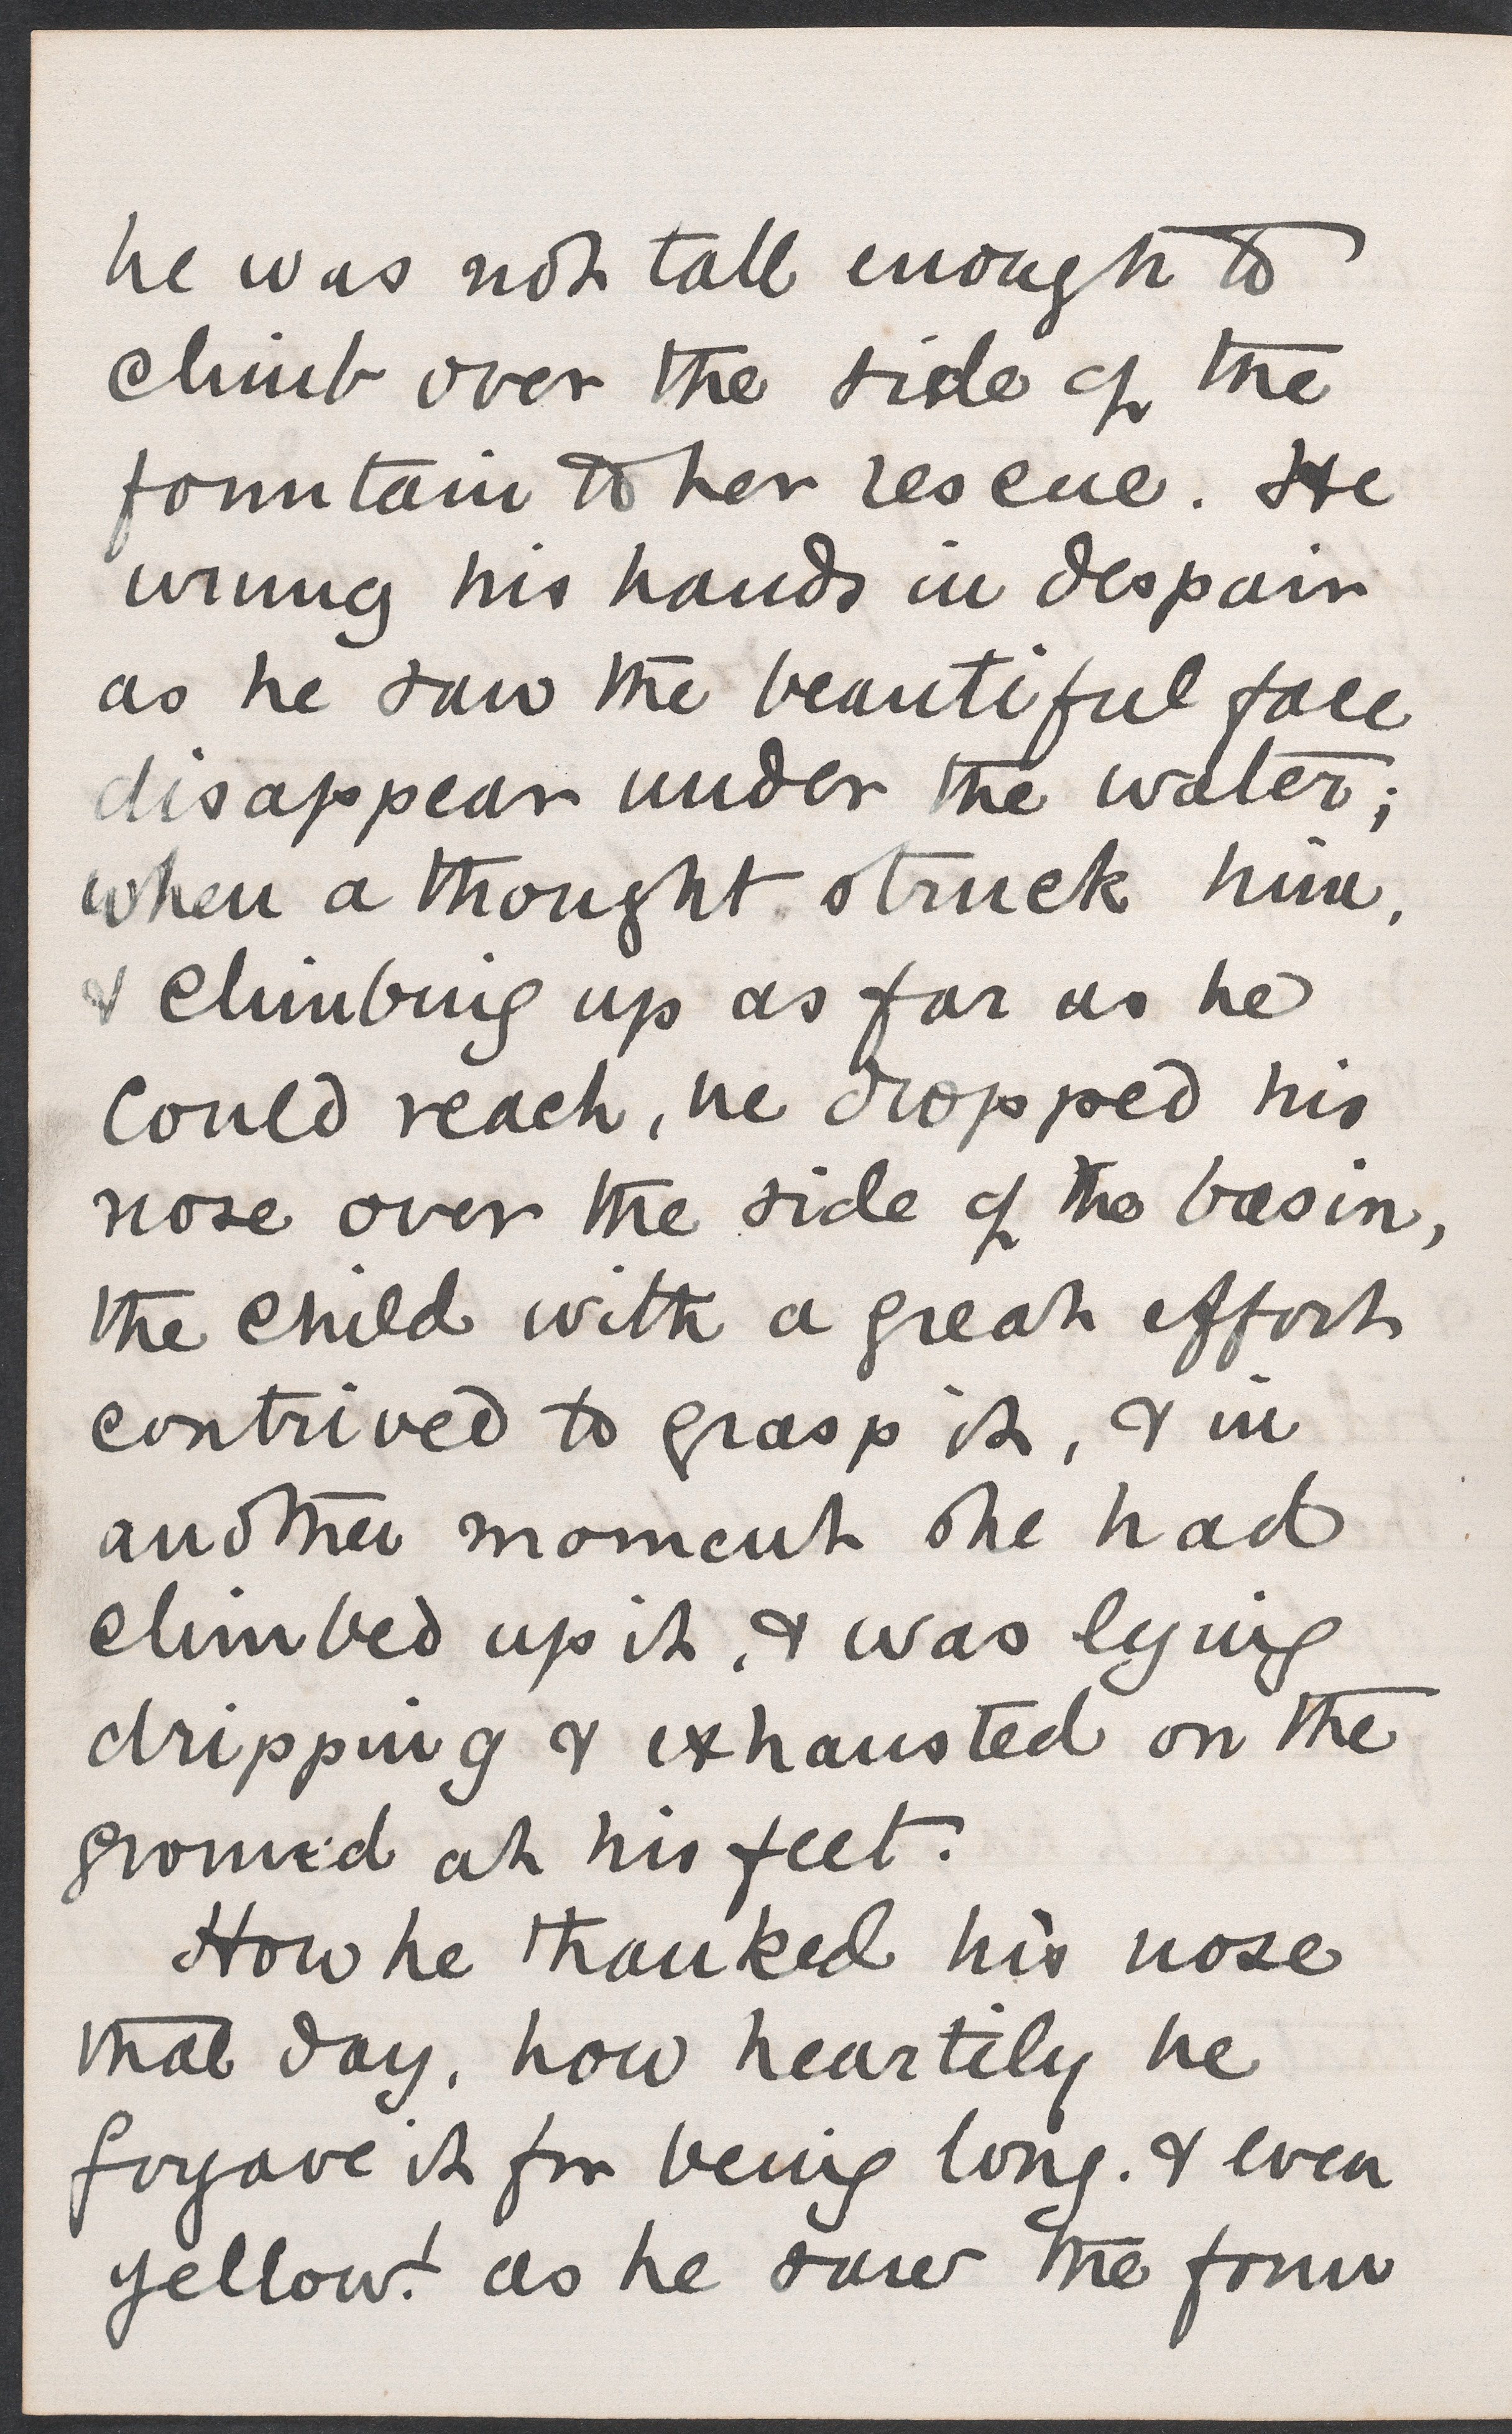 he was not tall enough to
climb over the side of the
fountain to her rescue. He
wrung his hands in despair
as he saw the beautiful face
disappear under the water;
when a thought struck him,
& climbing up as far as he
could reach, he dropped his
nose over the side of the basin,
the child with a great effort
contrived to grasp it, & in
another moment she had
climbed up it, & was lying
dripping & exhausted on the
ground at his feet.
How he thanked his nose
that day, how heartily he
forgave it for being long. & even
yellow! as he saw the form